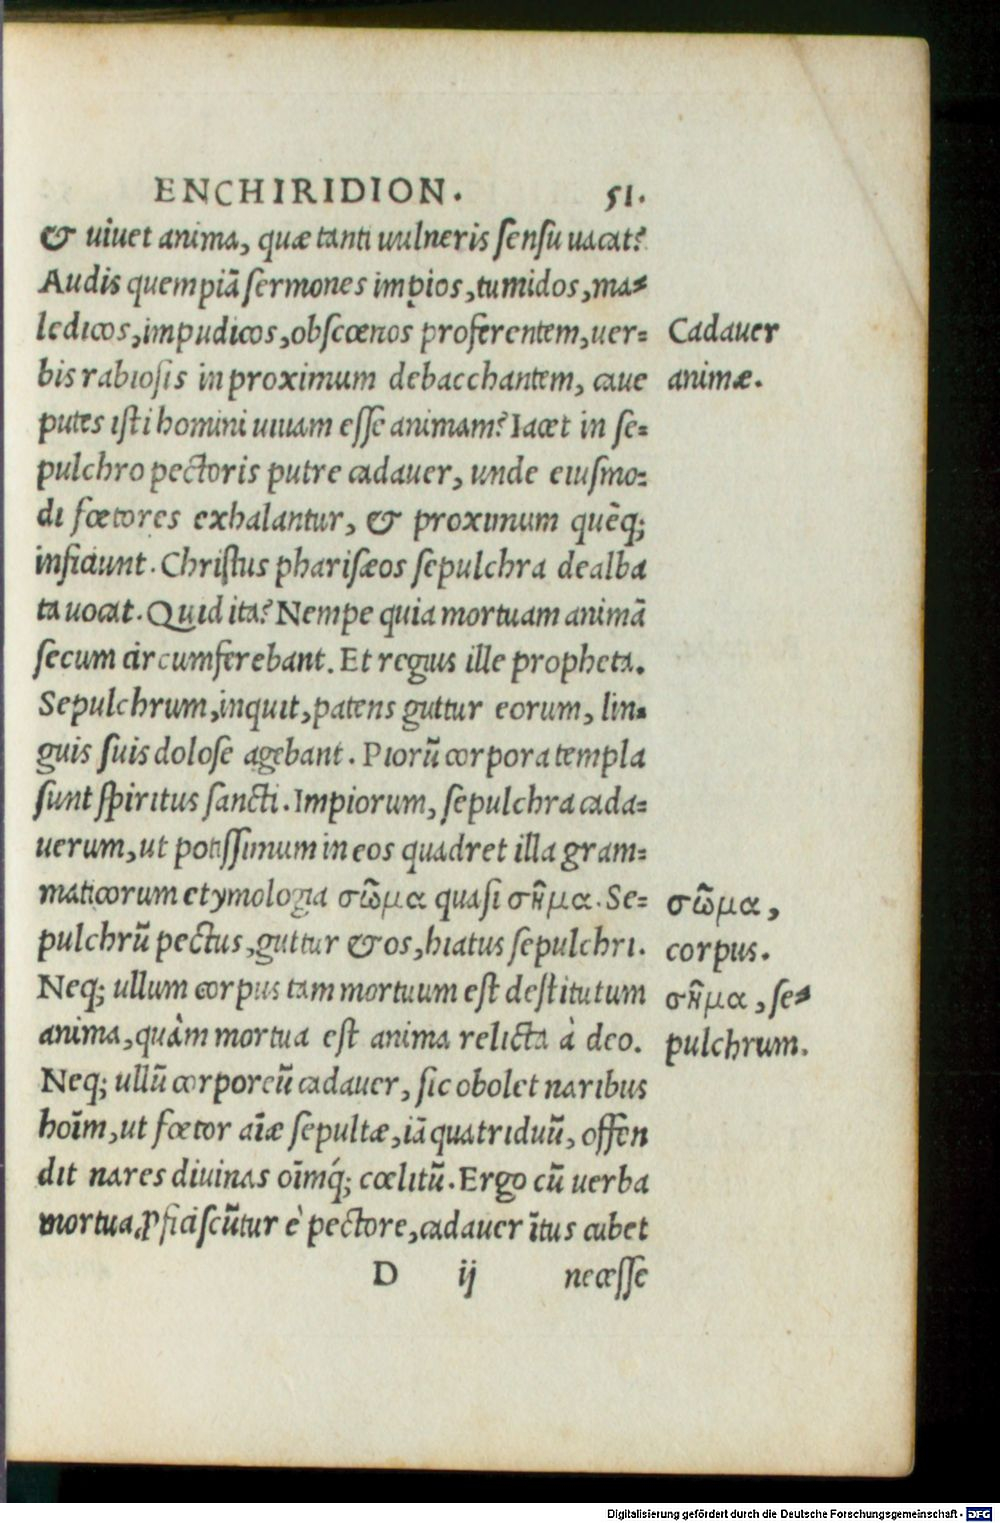 ENCHIRIDION. 51.
& uiuet anima, quæ tanti uulneris ſenſu uacat?
Audis quempiã ſermones impios, tumidos, ma=
ledicos, impudicos, obſcœnos proferentem, uer=
bis rabioſis in proximum debacchantem, caue
putes iſti homini uiuam eſſe animam? Iacet in ſe=
pulchro pectoris putre cadauer, unde eiuſmo=
di fœtores exhalantur, & proximum quẽq;
inficiunt. Chriſtus phariſæos ſepulchra dealba
ta uocat. Quid ita? Nempe quia mortuam animã
ſecum circumferebant. Et regius ille propheta.
Sepulchrum, inquit, patens guttur eorum, lin=
guis ſuis doloſe agebant. Piorũ corpora templa
ſunt ſpiritus ſancti. Impiorum, ſepulchra cada=
uerum, ut potiſſimum in eos quadret illa gram=
maticorum etymologia σῶμα quaſi σῆμα. Se=
pulchrũ pectus, guttur & os, hiatus ſepulchri.
Neq; ullum corpus tam mortuum eſt deſtitutum
anima, quàm mortua eſt anima relicta à deo.
Neq; ullũ corporeũ cadauer, ſic obolet naribus
hoĩm, ut fœtor aĩæ ſepultæ, iã quatriduũ, offen
dit nares diuinas oĩmq́; cœlitũ. Ergo cũ uerba
mortua ꝓficiſcũtur è pectore, cadauer ĩtus cubet
D ij neceſſe
Cadauer
animæ.
σῶμα,
corpus.
σῆμα, ſe=
pulchrum.
Digitalisierung gefördert durch die Deutsche Forschungsgemeinschaft - DFG